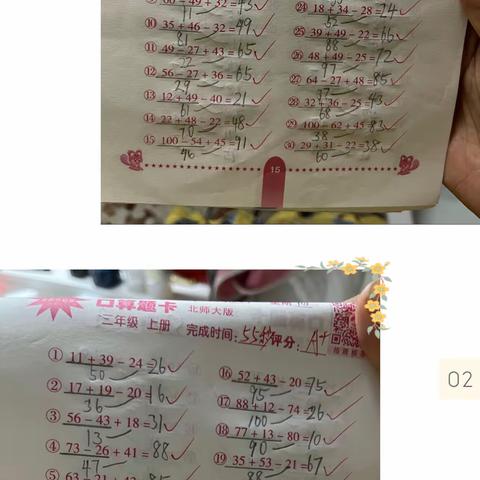 ⑩ 35 + 46 - 32 = 49
81
⑪ 49 - 27 + 43 = 65
22
⑫ 56 - 27 + 36 = 65
29
⑬ 12 + 49 - 40 = 21
61
⑭ 22 + 48 - 22 = 48
70
⑮ 100 - 54 + 45 = 91
46
㉔ 18 + 34 - 28 = 24
52
㉕ 39 + 49 - 22 = 66
88
㉖ 48 + 49 - 25 = 72
97
㉗ 64 - 27 + 48 = 85
37
㉘ 32 + 36 - 25 = 43
68
㉙ 100 - 62 + 45 = 83
38
㉚ 29 + 31 - 22 = 38
60
15
口算题卡
北师大版
三年级 上册 完成时间: 55秒 评分: A+
① 11 + 39 - 24 = 26
50
② 17 + 19 - 20 = 16
36
③ 56 - 43 + 18 = 31
13
④ 73 - 26 + 41 = 88
47
⑯ 52 + 43 - 20 = 75
95
⑰ 88 + 12 - 74 = 26
100
⑱ 77 + 13 - 80 = 10
90
⑲ 35 + 53 - 21 = 67
88
02